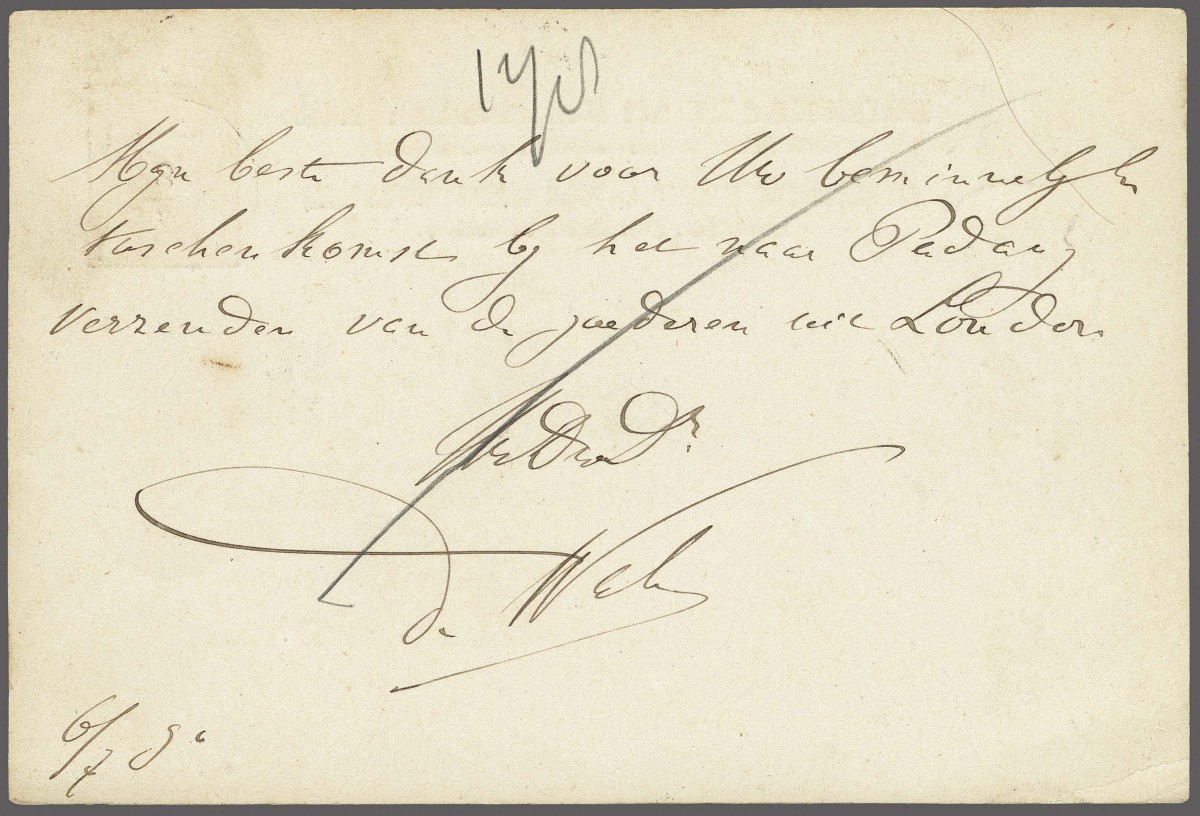 Mijn beste dank voor Uw beminnelijke
tusschenkomst bij het naar Padang
verzenden van de goederen uit London
Uw Dw Dr
de
6/7 90